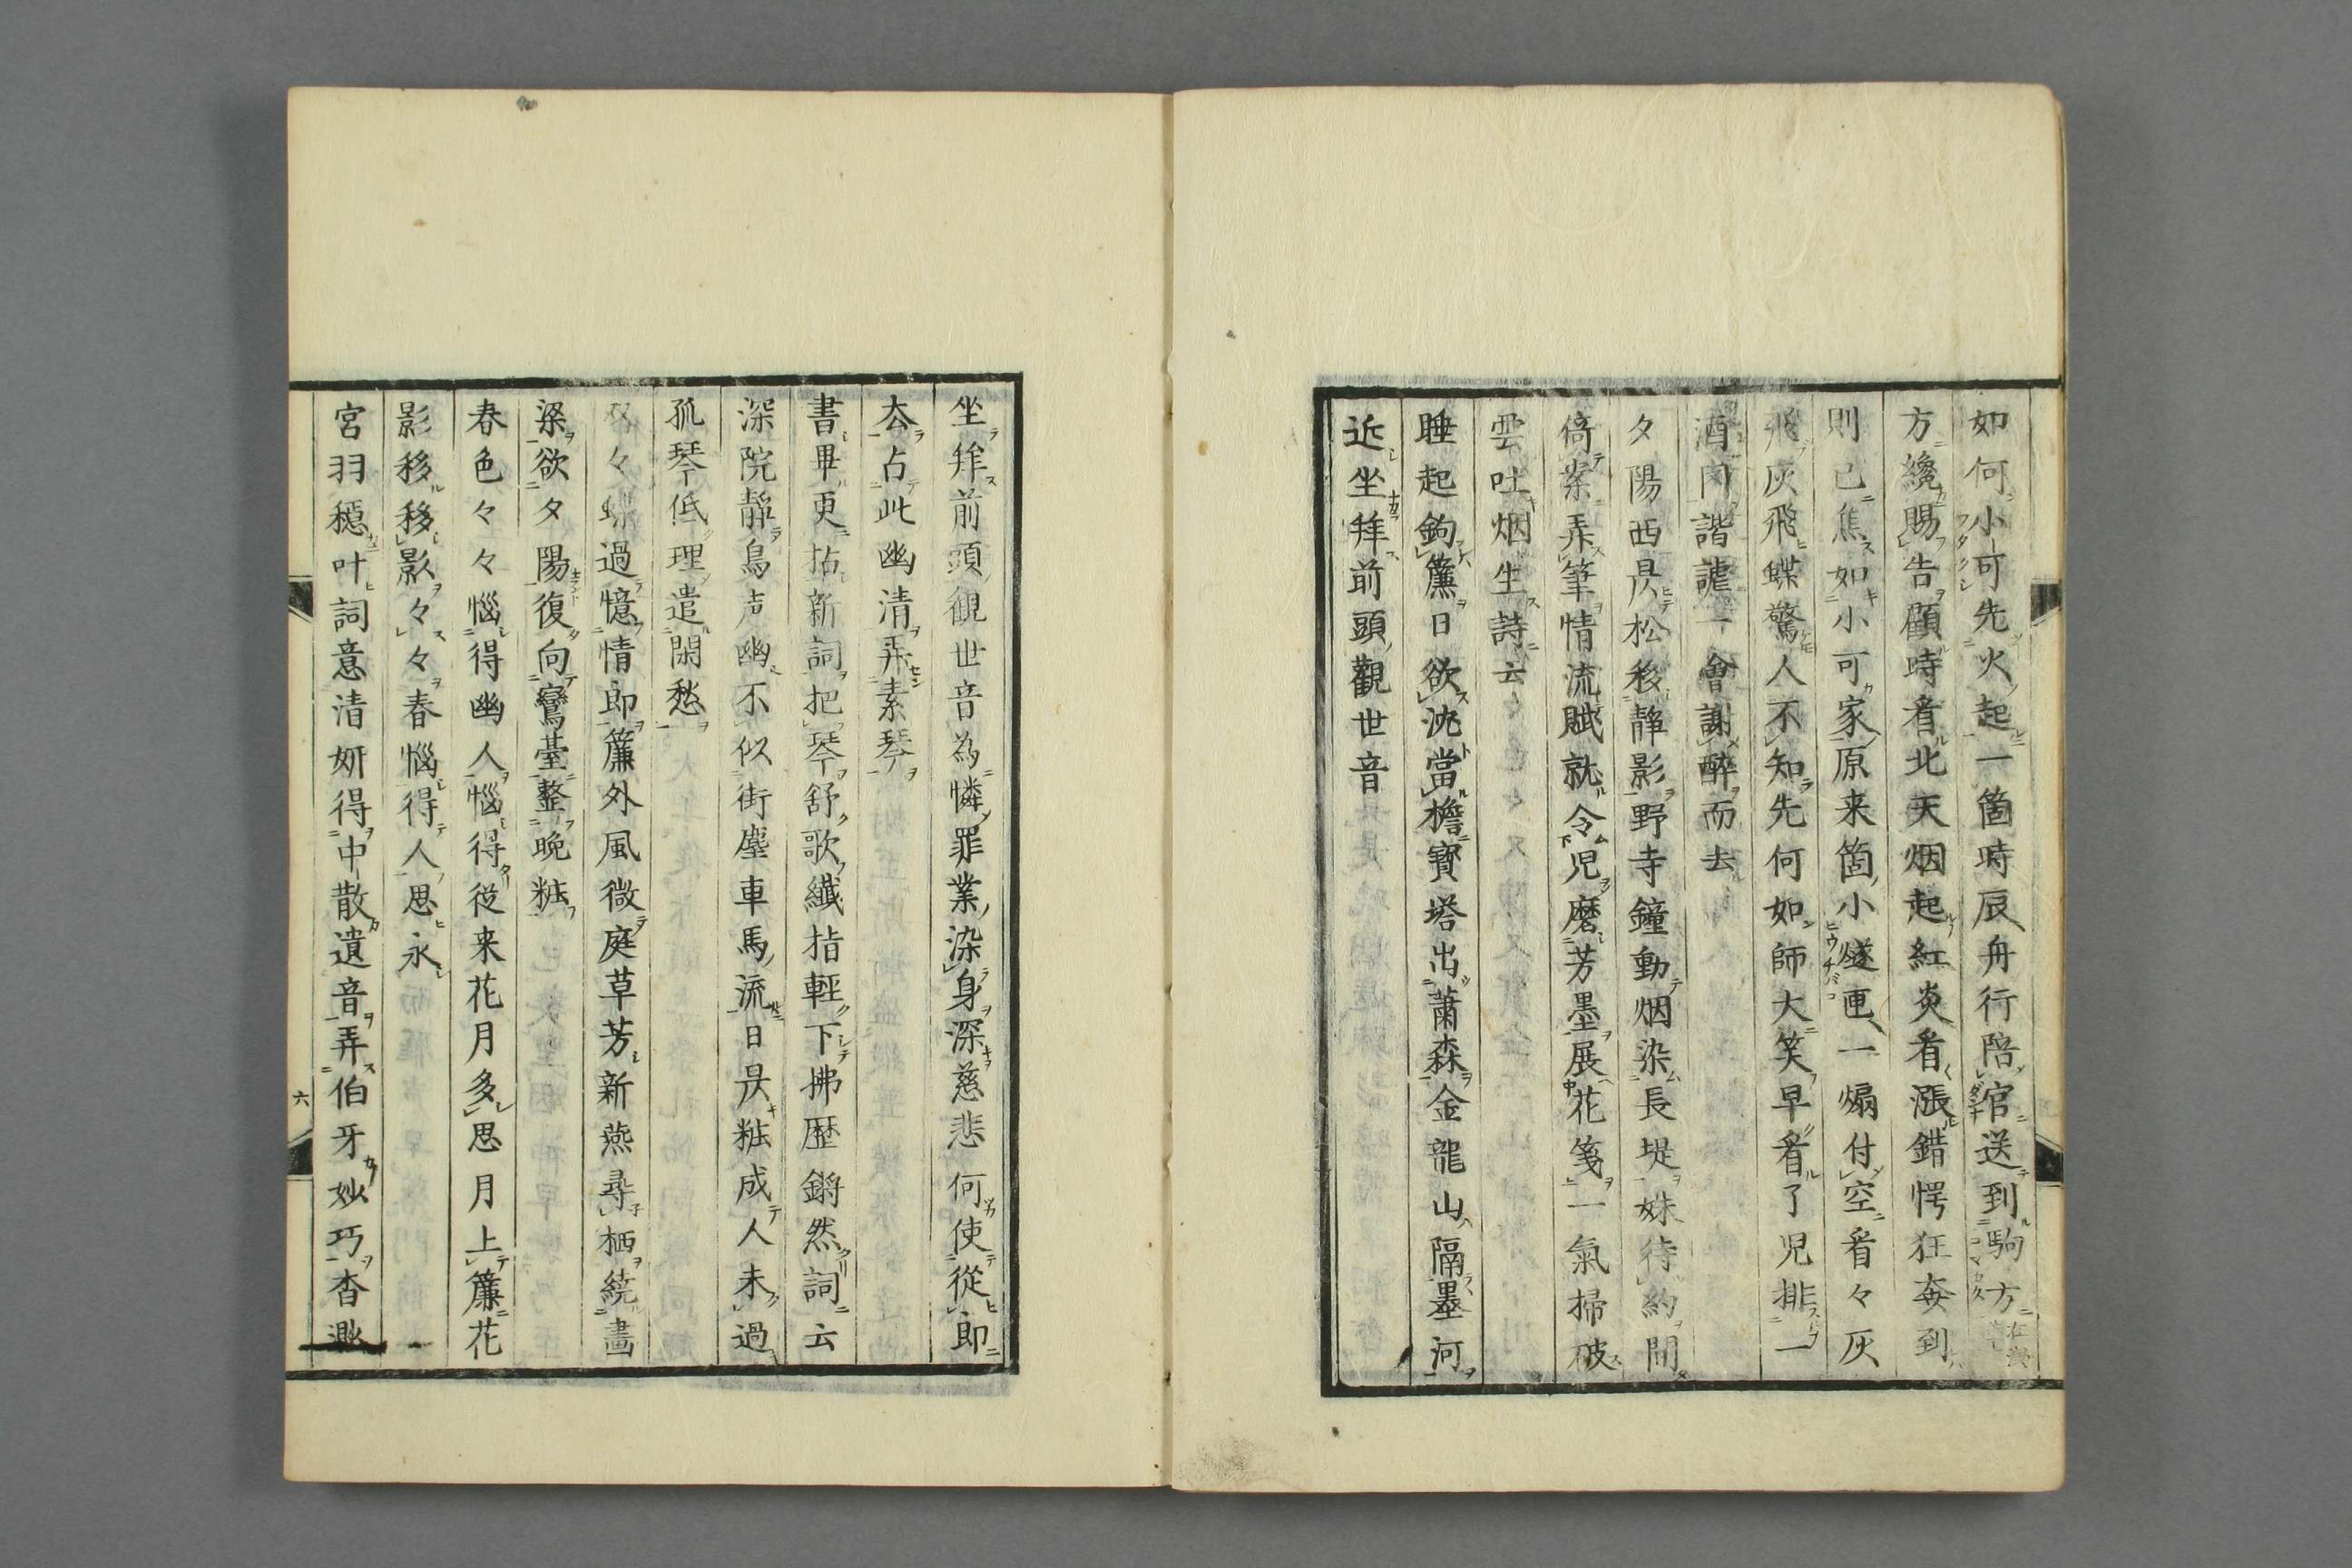 如何小可先火起一箇時辰舟行陪官送到駒方
方纔賜告顧時看北天烟起紅炎看漲錯愕狂奔到
則已焦如小可家原来箇小燧匣一煽付空看々灰
飛灰飛蝶驚人不知先何如師大笑早看了児排一
酒肉諧謔一會謝醉而去
夕陽西昃松移静影野寺鐘動烟染長堤妹待約間
倚案弄筆情流賦就令児磨芳墨展花箋一氣掃破
雲吐烟生詩云
睡起鉤簾日欲沈當檐寳塔出蕭森金龍山隔墨河
近坐拜前頭觀世音
坐拜前頭観世音為憐罪業染身深慈悲何使從即
去占此幽清弄素琴
書畢更拈新詞把琴舒歌纖指輕下拂歴鏘然詞云
深院靜鳥声幽不似街塵車馬流日昃粧成人未過
孤琴低理遣閑愁
双々蝶過憶情郎簾外風微庭草芳新燕尋栖繞畫
梁欲夕陽復向鸞臺整晩粧
春色々々惱得幽人惱得従来花月多思月上簾花
影移移影々々春惱得人思永
宮羽穏叶詞意清妍得中散遺音弄伯牙妙巧杳渺
六